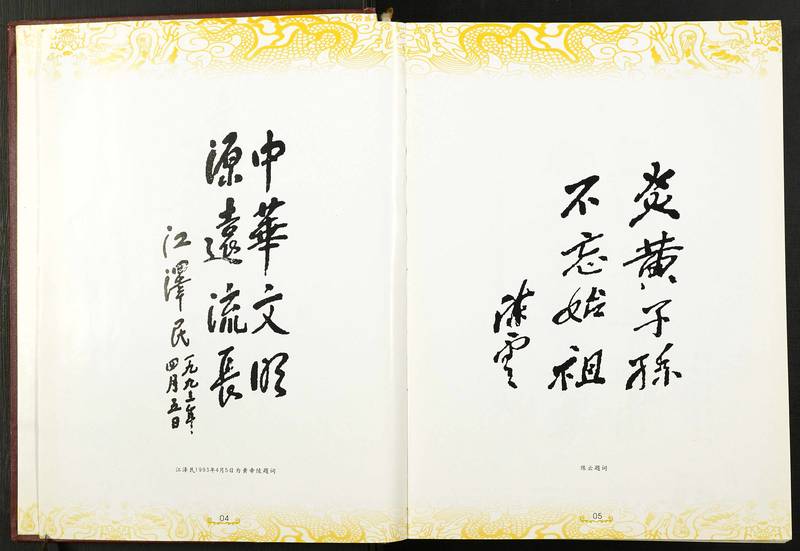 中華文明
源遠流長
江澤民
一九九三年、
四月五日
江泽民1993年4月5日为黄帝陵题词
04
炎黄子孫
不忘始祖
陳雲
陈云题词
05